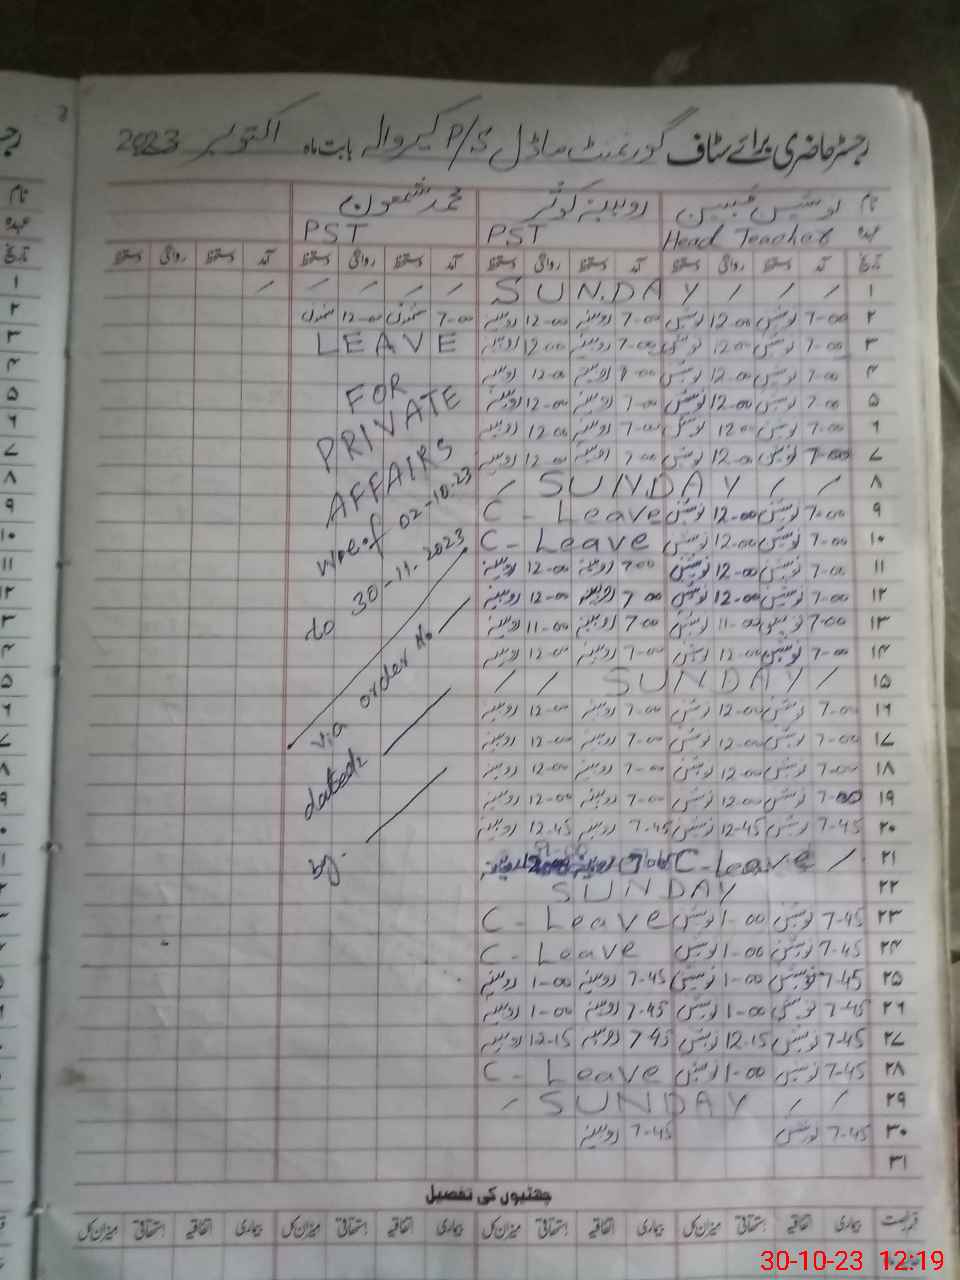 رجسٹر حاضری برائے سٹاف گورنمنٹ ماڈل P/S کیروالہ بابت ماہ اکتوبر 2023
نام نوشین مبین روبینہ کوثر محمد شمعون
عہدہ Head Teacher PST PST
تاریخ آمد دستخط روانگی دستخط آمد دستخط روانگی دستخط آمد دستخط روانگی دستخط آمد دستخط روانگی دستخط
۱ SUNDAY
۲ 7-00 نوشین 12-00 نوشین 7-00 روبینہ 12-00 روبینہ 7-00 شمعون 12-00 شمعون
۳ 7-00 نوشین 12-00 نوشین 7-00 روبینہ 12-00 روبینہ LEAVE
۴ 7-00 نوشین 12-00 نوشین 7-00 روبینہ 12-00 روبینہ FOR
۵ 7-00 نوشین 12-00 نوشین 7-00 روبینہ 12-00 روبینہ PRIVATE
۶ 7-00 نوشین 12-00 نوشین 7-00 روبینہ 12-00 روبینہ
۷ 7-00 نوشین 12-00 نوشین 7-00 روبینہ 12-00 روبینہ AFFAIRS
۸ SUNDAY
۹ 7-00 نوشین 12-00 نوشین C-Leave w.e.f 02-10-23
۱۰ 7-00 نوشین 12-00 نوشین C-Leave
۱۱ 7-00 نوشین 12-00 نوشین 7-00 روبینہ 12-00 روبینہ to 30-11-2023
۱۲ 7-00 نوشین 12-00 نوشین 7-00 روبینہ 12-00 روبینہ
۱۳ 7-00 نوشین 11-00 نوشین 7-00 روبینہ 11-00 روبینہ
۱۴ 7-00 نوشین 12-00 نوشین 7-00 روبینہ 12-00 روبینہ via order No
۱۵ SUNDAY
۱۶ 7-00 نوشین 12-00 نوشین 7-00 روبینہ 12-00 روبینہ
۱۷ 7-00 نوشین 12-00 نوشین 7-00 روبینہ 12-00 روبینہ
۱۸ 7-00 نوشین 12-00 نوشین 7-00 روبینہ 12-00 روبینہ dated:
۱۹ 7-00 نوشین 12-00 نوشین 7-00 روبینہ 12-00 روبینہ
۲۰ 7-45 نوشین 12-45 نوشین 7-45 روبینہ 12-45 روبینہ
۲۱ C-Leave روبینہ روبینہ by.
۲۲ SUNDAY
۲۳ 7-45 نوشین 1-00 نوشین C-Leave
۲۴ 7-45 نوشین 1-00 نوشین C-Leave
۲۵ 7-45 نوشین 1-00 نوشین 7-45 روبینہ 1-00 روبینہ
۲۶ 7-45 نوشین 1-00 نوشین 7-45 روبینہ 1-00 روبینہ
۲۷ 7-45 نوشین 12-15 نوشین 7-45 روبینہ 12-15 روبینہ
۲۸ 7-45 نوشین 1-00 نوشین C-Leave
۲۹ SUNDAY
۳۰ 7-45 نوشین 7-45 روبینہ
۳۱
چھٹیوں کی تفصیل
بیماری اتفاقیہ استحقاقی میزان کل بیماری اتفاقیہ استحقاقی میزان کل بیماری اتفاقیہ استحقاقی میزان کل
30-10-23 12:19